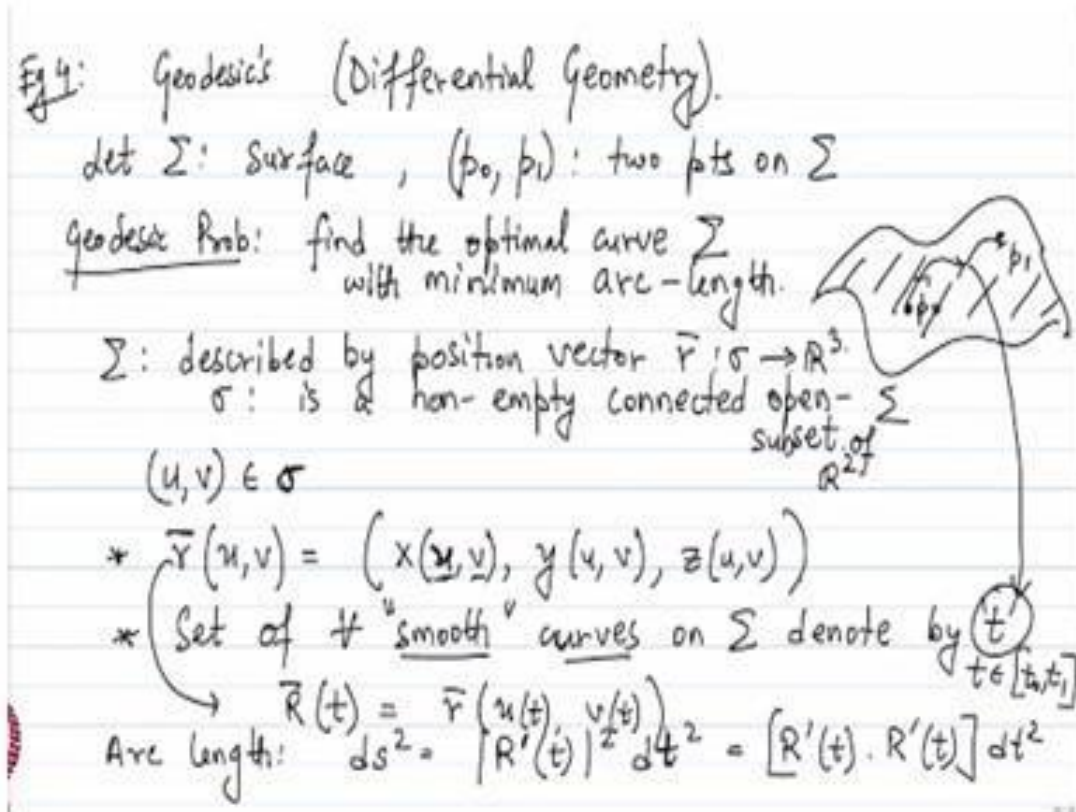 Eg 4: Geodesic's (Differential Geometry).
Let Σ: Surface, (p₀, p₁): two pts on Σ
Geodesic Prob: find the optimal curve Σ
with minimum arc-length.
p₀ p₁
Σ: described by position vector r̄ : σ → ℝ³.
σ: is a non-empty connected open-
subset of
ℝ²
Σ
(u,v) ∈ σ
* r̄(u,v) = (x(u,v), y(u,v), z(u,v))
* Set of ∀ "smooth" curves on Σ denote by t
t ∈ [t₀,t₁]
R̄(t) = r̄(u(t), v(t))
Arc length: ds² = |R'(t)|² dt² = [R'(t) . R'(t)] dt²